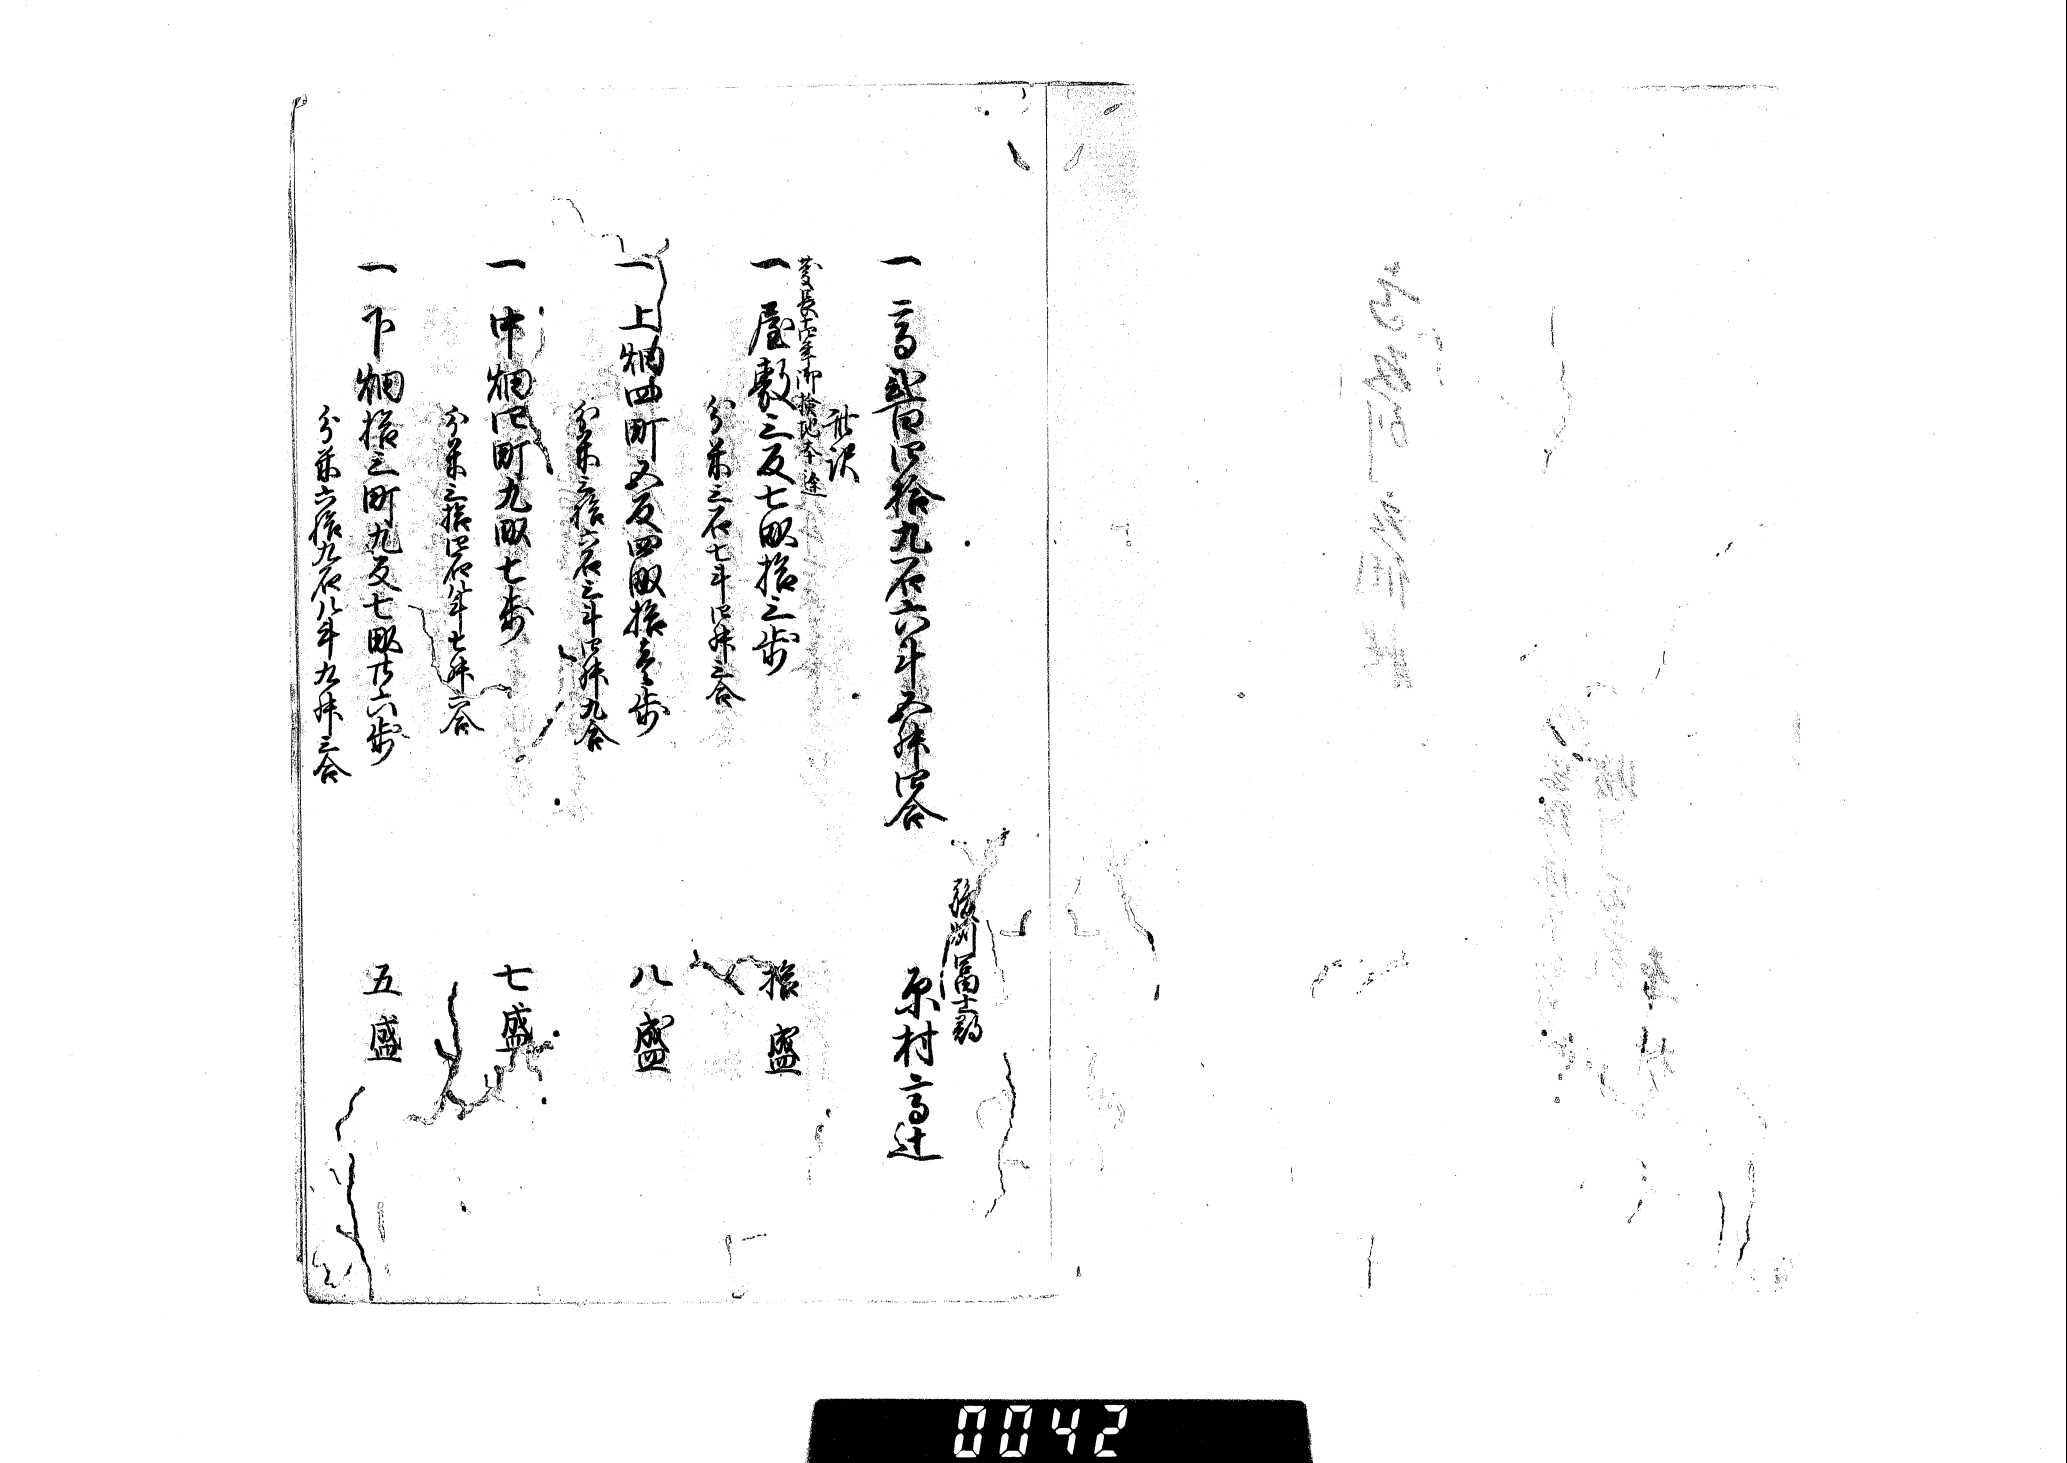 駿州富士郡
原村高辻
一 高貳百四拾九石六斗五升四合
此訳
慶長十四年御検地本途
一 屋敷三反七畝拾三歩 拾盛
分米三石七斗四升三合
一 上畑四町五反四畝拾壱歩 八盛
分米三拾六石三斗四升九合
一 中畑四町九畝七歩 七盛
分米三拾四石八斗七升六合
一 下畑拾三町九反七畝廿六歩 五盛
分米六拾九石八斗九升三合
0042